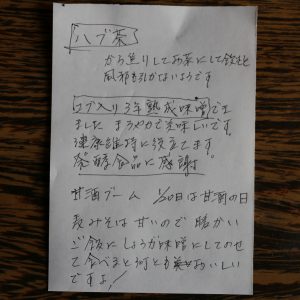 ハブ茶
から煎りしてお茶にして飲むと
風邪を引かないようです
コブ入り3年熟成味噌できました まろやかで美味しいです。
健康維持に役立てます
発酵食品に感謝。
甘酒ブーム 1/20日は甘酒の日
麦みそは甘いので 暖かい
ご飯にしょうが味噌にしてのせ
て食べると何とも おいしい
ですよ!